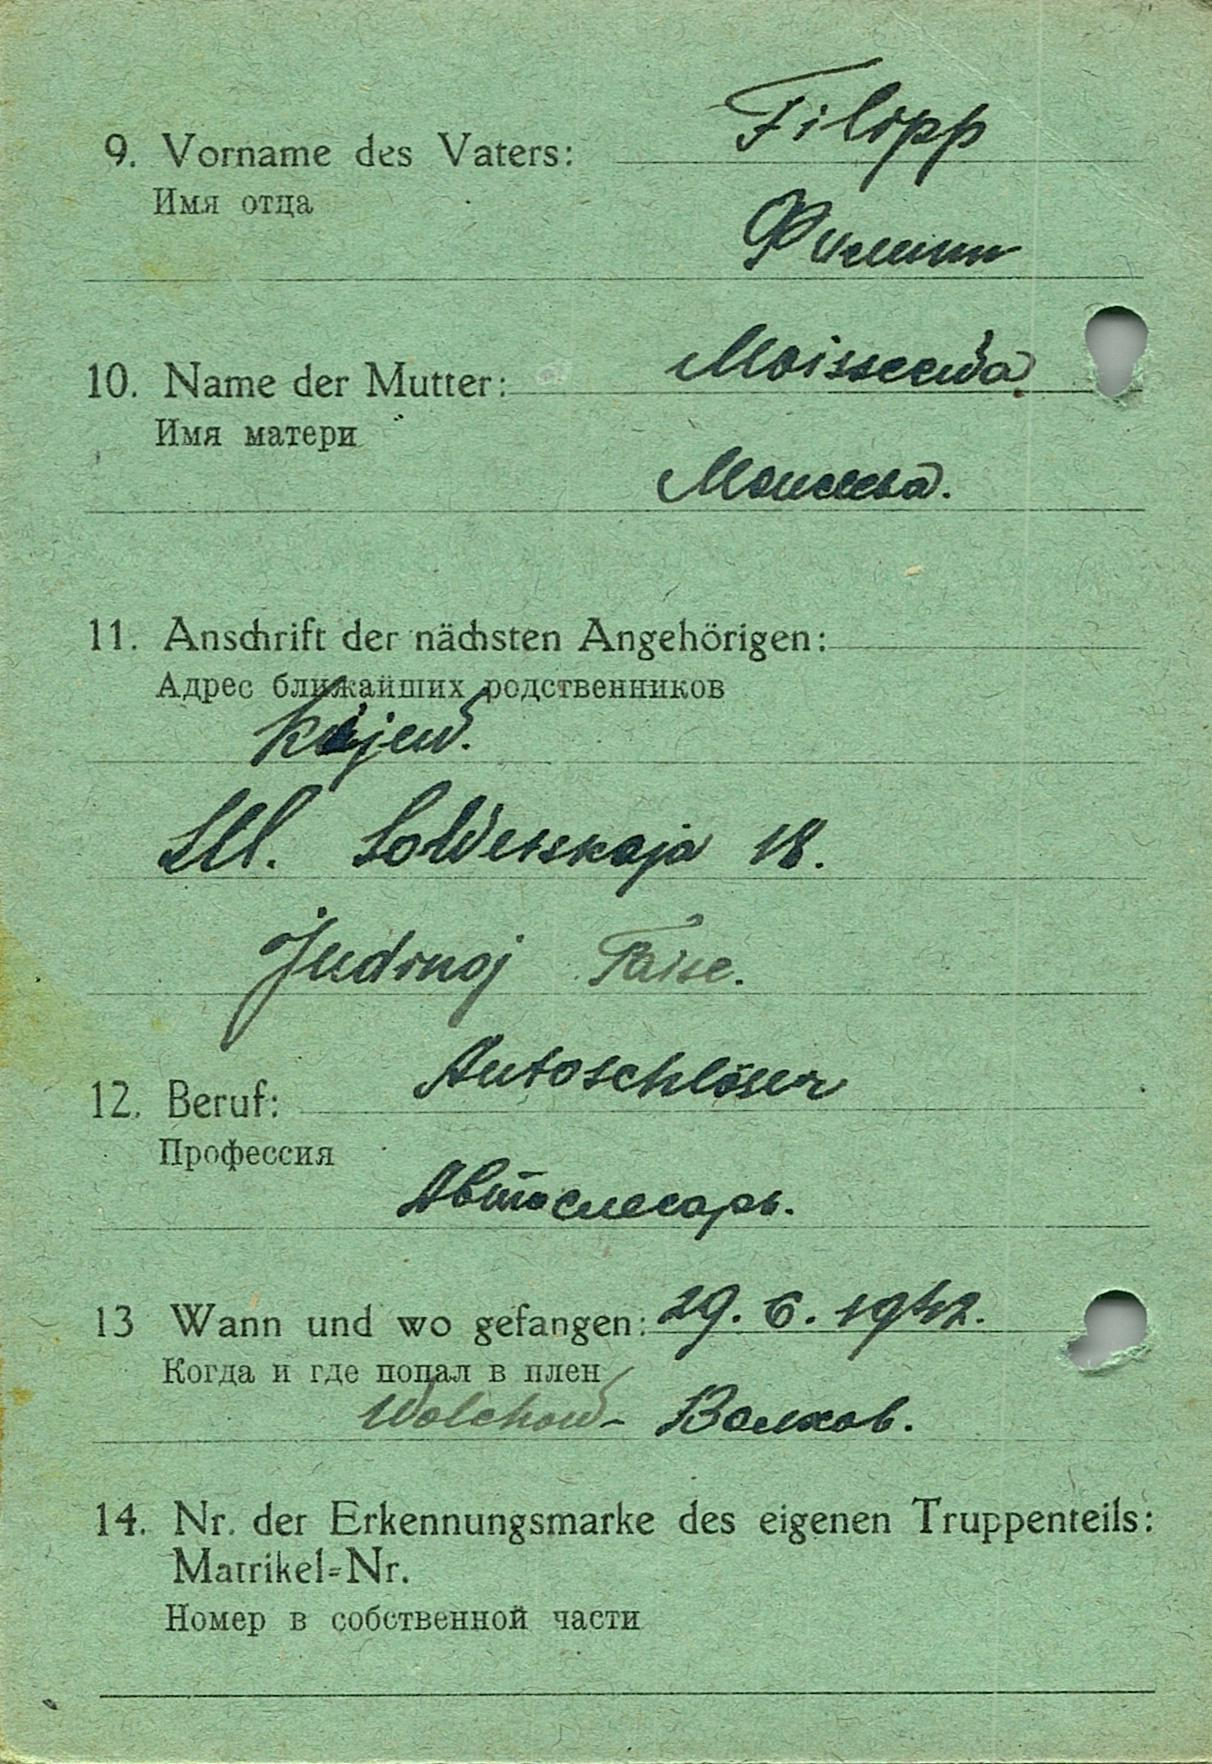 9. Vorname des Vaters: Filipp
Имя отца
Филипп
10. Name der Mutter: Moisseewa
Имя матери
Моисеева.
11. Anschrift der nächsten Angehörigen:
Адрес ближайших родственников
Kijew.
Ul. Sowetskaja 18.
Judinoj Taise.
12. Beruf: Autoschlösser
Профессия
Автослесарь.
13 Wann und wo gefangen: 29. 6. 1942.
Когда и где попал в плен
Wolchow - Волхов.
14. Nr. der Erkennungsmarke des eigenen Truppenteils:
Matrikel=Nr.
Номер в собственной части